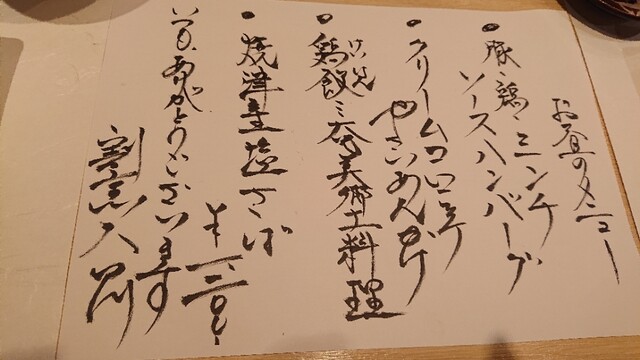 お昼のメニュー
豚、鶏ミンチ
ソースハンバーグ
クリームコロッケ
やさいあんかけ
鶏飯ミニ奄美郷土料理
けいはん
焼津産塩さば
いつもありがとうございます
割烹入船